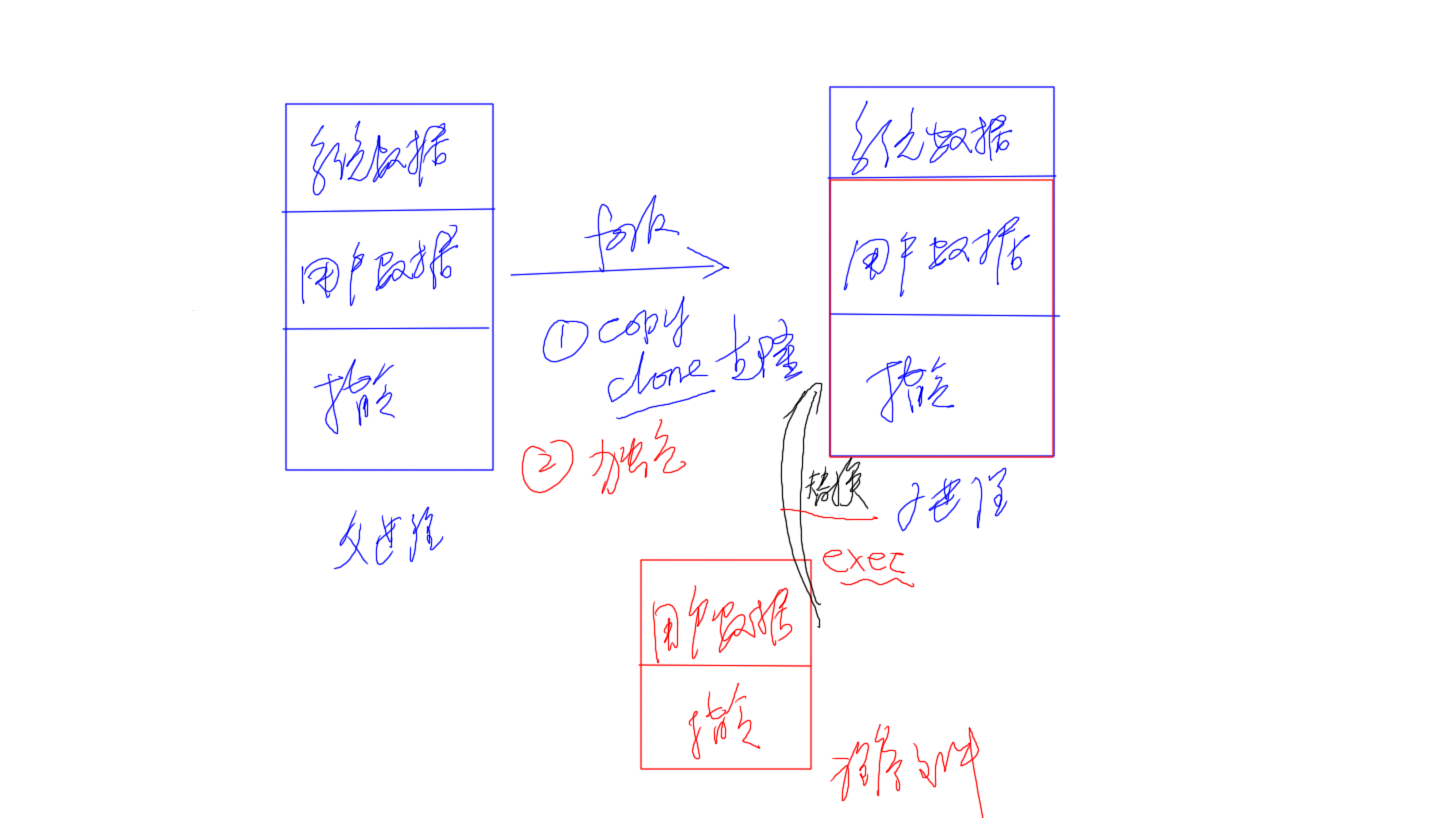 系统数据
用户数据
指令
父进程
fork
① copy
clone 克隆
② 加载
系统数据
用户数据
指令
子进程
替换
exec
用户数据
指令
程序文件